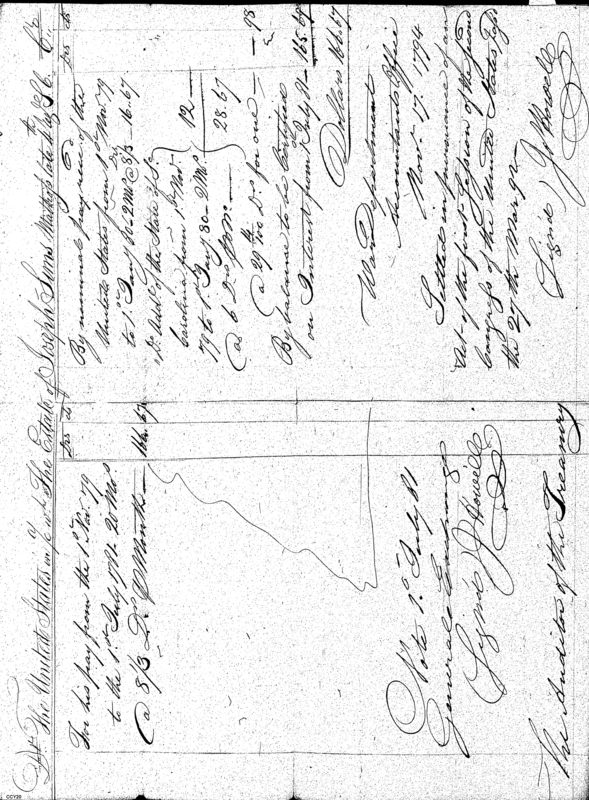 Dr. The United States in a/c wt. The Estate of Joseph Simms Mattross late May 86 Cr.
ps cts
For his pay from the 1st Nov. 79
to the 1st July 1781. 20 Mos.
@ 8/3 Ds. p Month — 166.67
Note 1st July 81
General Exchange
Signd J Howell
The Auditor of the Treasury
ps cts
By nominal pay reced. of the
United States from 1st Nov. 79
to 1st Jany 80 2 Mo @ 8/3 — 16.67
Do. Addl. of the State of So.
Carolina from 1st Nov.
79 to 1st Jany 80 2 Mos.
@ 6 Ds p Mo. — 12 —
28.67
@ 29 Ds. for one — .98
By balance to be Certified
on Interest from 1 July 81 — 165.69
Dollars 166.67
War Department
Accountants Office
Nov. 17. 1794
Settled in pursuance of an
Act of the first Session of the second
Congress of the United States, passd
the 27th Mar. 92
Signd J Howell
CCY20